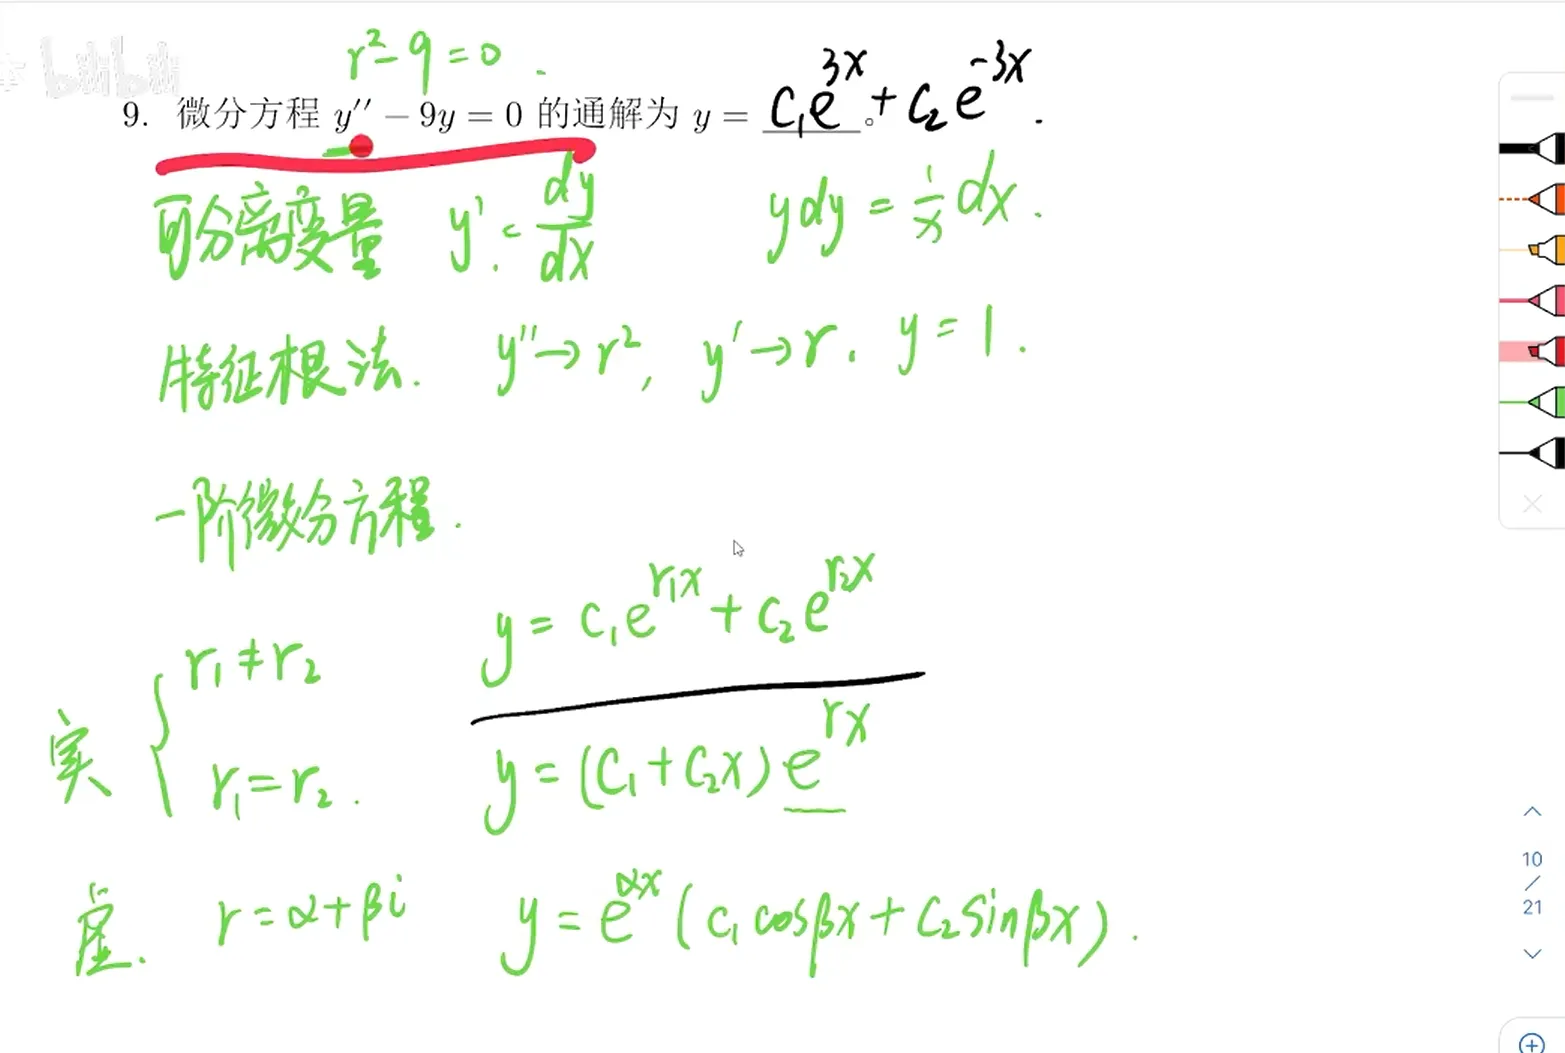 bilibili
r² - 9 = 0 .
9. 微分方程 y'' − 9y = 0 的通解为 y = C₁e^{3x} 。+ C₂e^{-3x} .
可分离变量 y' = dy/dx ydy = 1/x dx .
特征根法. y'' → r² , y' → r . y = 1 .
一阶微分方程 .
r₁ ≠ r₂ y = C₁e^{r₁x} + C₂e^{r₂x}
实
r₁ = r₂ . y = (C₁ + C₂x) e^{rx}
虚. r = α + βi y = e^{αx} ( C₁ cosβx + C₂ sinβx ) .
10
/
21